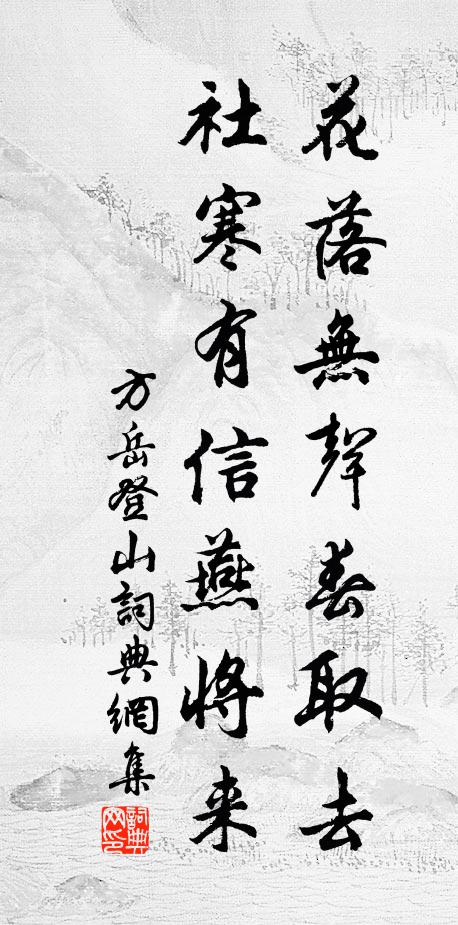 花落無聲春取去
社寒有信燕將来
方岳登山詞典網集
詞典網印